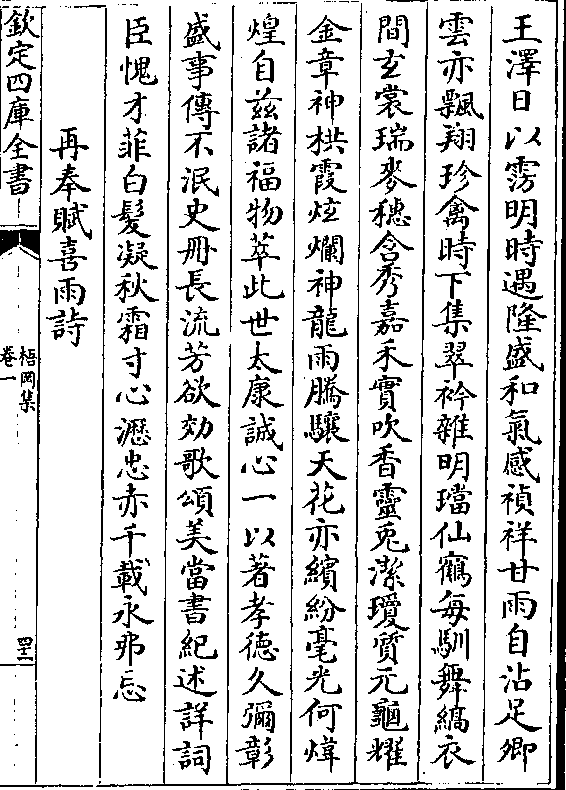 王澤日以霶明時遇隆盛和氣感禎祥甘雨自沾足卿
雲亦飄翔珍禽時下集翠衿雜明璫仙鶴每馴舞縞衣
間玄裳瑞麥穗含秀嘉禾實吹香靈兎潔瓊質元龜耀
金章神栱霞炫爛神龍雨騰驤天花亦繽紛毫光何煒
煌自茲諸福物萃此世太康誠心一以著孝德久彌彰
盛事傳不泯史冊長流芳欲効歌頌美當書紀述詳詞
臣愧才菲白髮凝秋霜寸心瀝忠赤千載永弗忘
再奉賦喜雨詩
欽定四庫全書
梧岡集
卷一